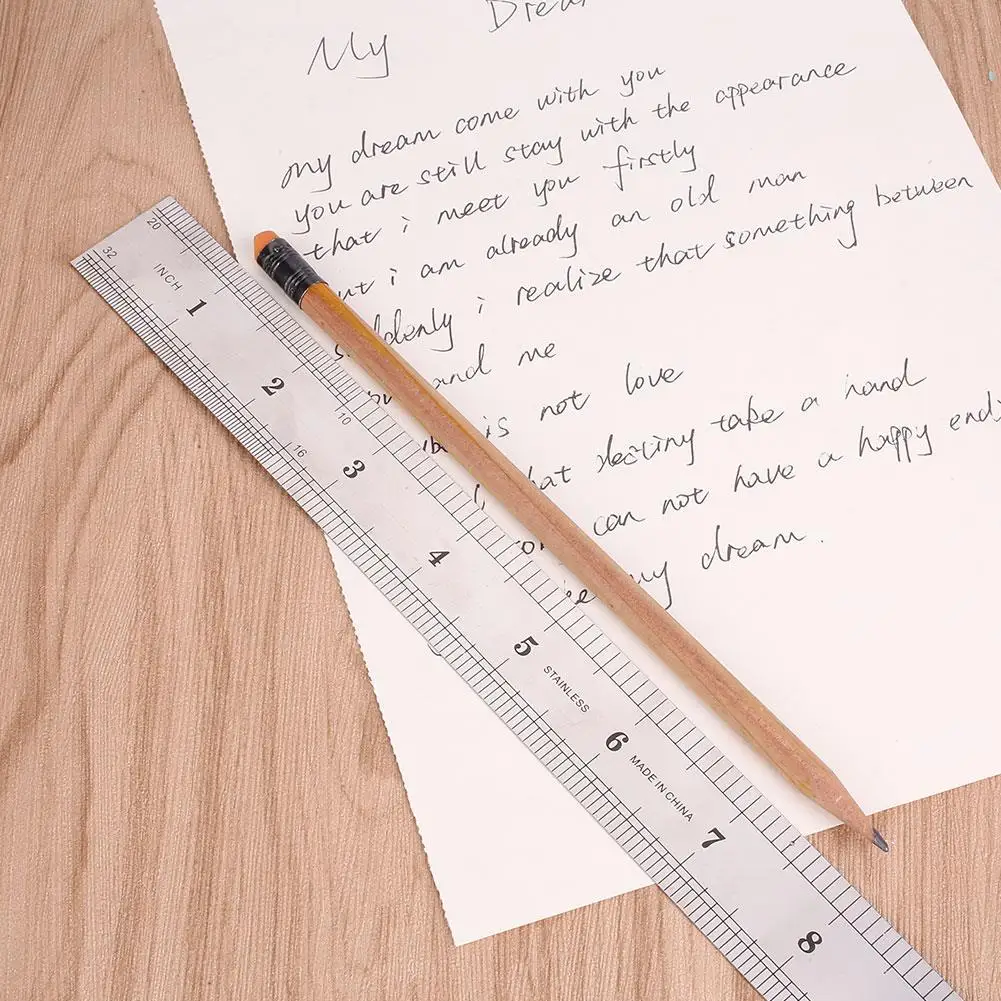 My Dream
my dream come with you
you are still stay with the appearance
that i meet you firstly
i am already an old man
i realize that something between
and me
is not love
take a hand
can not have a happy end
my dream.
INCH 1 2 3 4 5 STAINLESS 6 MADE IN CHINA 7 8
20
32
10
16